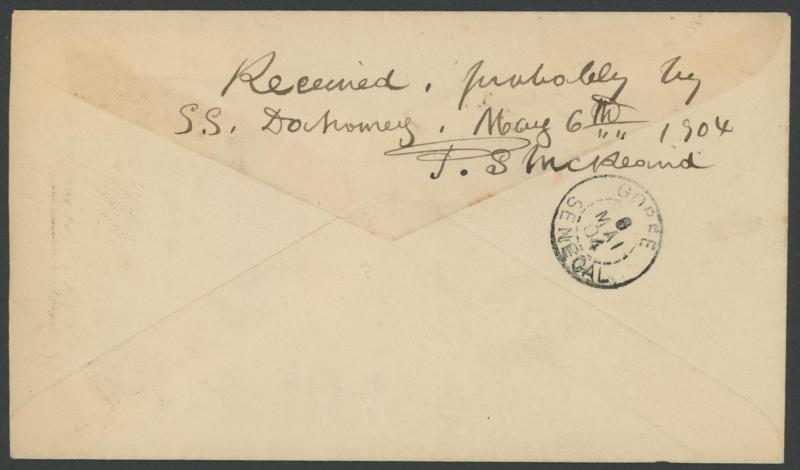 Received, probably by
S.S. Dahomey, May 6th 1904
P. S McKeand
GOREE
6
MAI
04
SENEGAL